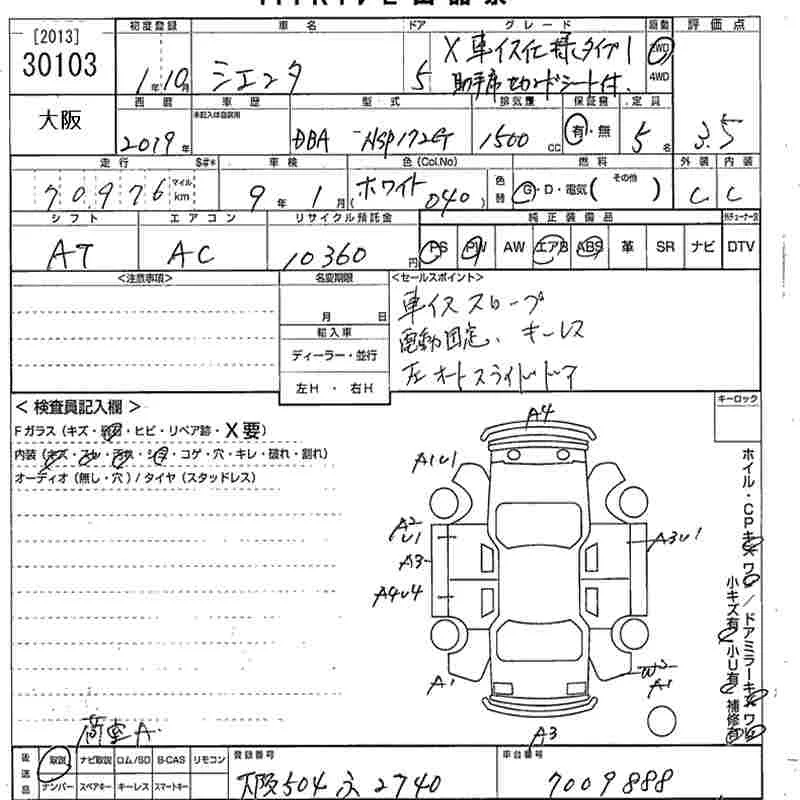 [2013]
30103
大阪
初度登録 車名 ドア グレード 駆動 評価点
1年10月 シエンタ 5 X 車イス仕様タイプ1 2WD
助手席セカンドシート付. 4WD
西暦 車歴 型式 排気量 保証書 定員
未記入は自家用
2019年 DBA -NSP172G 1500cc 有・無 5名 3.5
走行 $#* 車検 色(Col.No) 燃料 外装 内装
70976 マイル km 9年1月 (ホワイト 040) 色替 G・D・電気( その他 ) C C
シフト エアコン リサイクル預託金 純正装備品
AT AC 10360円 PS PW AW エアB ABS 革 SR ナビ DTV
<注意事項> 名変期限 <セールスポイント>
月 日 車イススロープ
輸入車 電動固定、キーレス
ディーラー・並行 左オートスライドドア
左H・右H
キーロック
< 検査員記入欄 >
Fガラス(キズ・飛石・ヒビ・リペア跡・X要)
内装(キズ・スレ・汚れ・シミ・コゲ・穴・キレ・破れ・割れ)
オーディオ(無し・穴)/タイヤ(スタッドレス)
A4
A1U1
A2
U1
A3U1
A3
A4U4
W2
A1
A1
A3
ホイル・CPキズワレ/ドアミラーキズワレ
小キズ有 小U有 補修有
荷室A
後送品 取説 ナビ取説 ロム/SD B-CAS リモコン 登録番号 車台番号
ナンバー スペアキー キーレス スマートキー 大阪504 2740 7009888